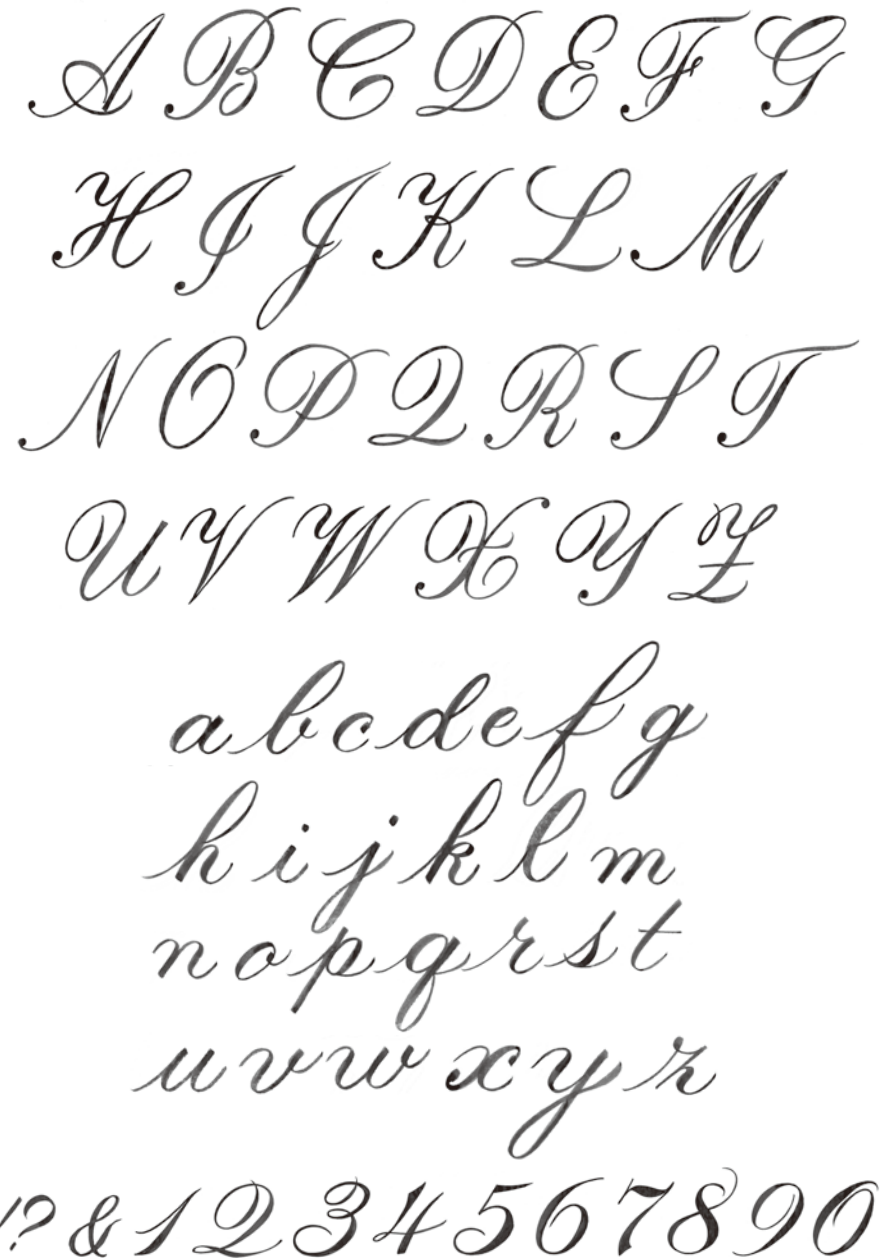 A B C D E F G
H I J K L M
N O P Q R S T
U V W X Y Z
a b c d e f g
h i j k l m
n o p q r s t
u v w x y z
! ? & 1 2 3 4 5 6 7 8 9 0